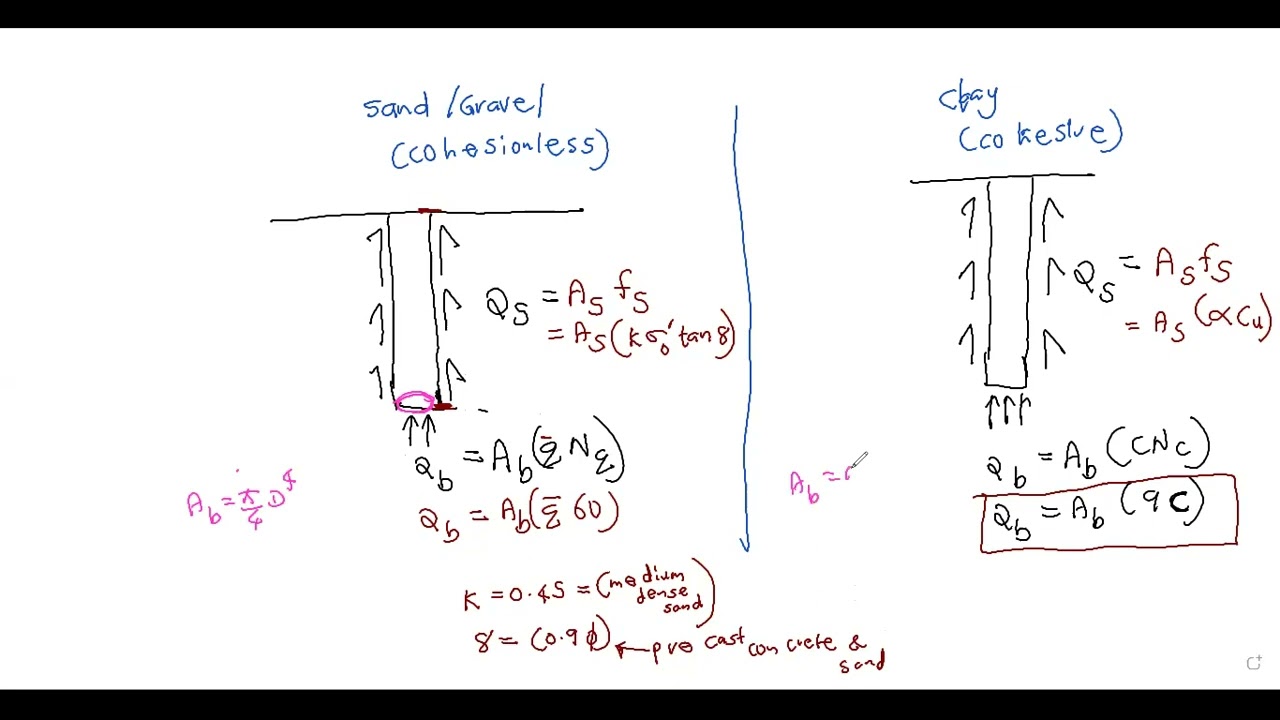 sand /Gravel
(cohesionless)
Qs = As fs
= As (kσ₀' tan δ)
Qb = Ab (q̄ Nq)
Qb = Ab (q̄ 60)
Ab = π/4 D²
K = 0.45 = (medium dense sand)
δ = (0.9 ϕ) ← pre cast concrete & sand
clay
(cohesive)
Qs = As fs
= As (αCu)
Qb = Ab (CNc)
Qb = Ab (9C)
Ab =